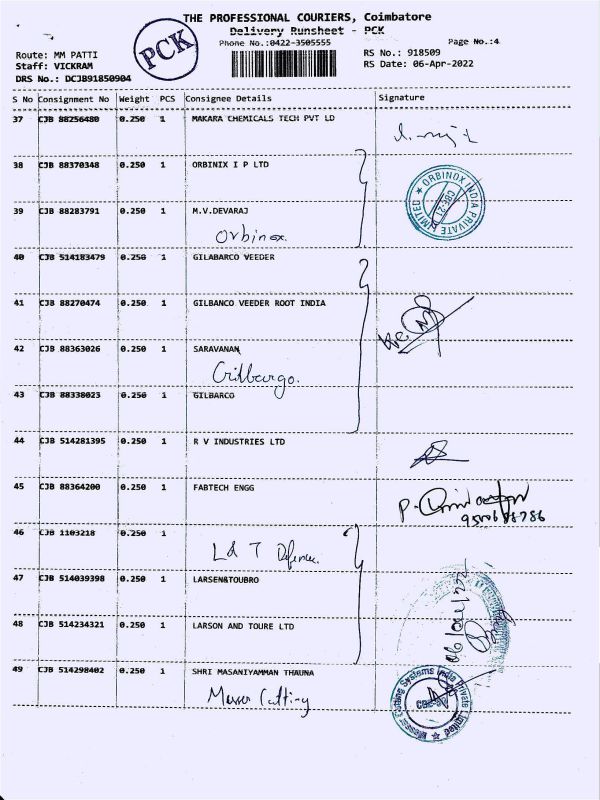 THE PROFESSIONAL COURIERS, Coimbatore
Delivery Runsheet - PCK
PCK
Phone No.:0422-3505555
Page No.:4
Route: MM PATTI
RS No.: 918509
Staff: VICKRAM
RS Date: 06-Apr-2022
DRS No.: DCJB91850904
S No Consignment No Weight PCS Consignee Details Signature
37 CJB 88256480 0.250 1 MAKARA CHEMICALS TECH PVT LD
38 CJB 88370348 0.250 1 ORBINIX I P LTD
ORBINOX INDIA PRIVATE LIMITED
CBE-21
39 CJB 88283791 0.250 1 M.V.DEVARAJ
Orbinox.
40 CJB 514183479 0.250 1 GILABARCO VEEDER
41 CJB 88270474 0.250 1 GILBANCO VEEDER ROOT INDIA
42 CJB 88363026 0.250 1 SARAVANAN
43 CJB 88338023 0.250 1 GILBARCO
44 CJB 514281395 0.250 1 R V INDUSTRIES LTD
45 CJB 88364200 0.250 1 FABTECH ENGG
46 CJB 1103218 0.250 1
L d T Defence.
47 CJB 514039398 0.250 1 LARSEN&TOUBRO
06/04/22
48 CJB 514234321 0.250 1 LARSON AND TOURE LTD
49 CJB 514298402 0.250 1 SHRI MASANIYAMMAN THAUNA
Messer Cutting
Messer Cutting Systems India Private Limited